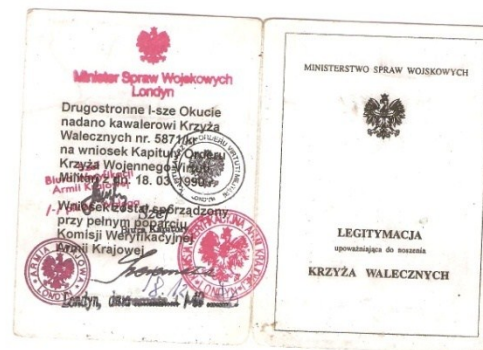 Minister Spraw Wojskowych
Londyn
Drugostronne I-sze Okucie
nadano kawalerowi Krzyża
Walecznych nr. 5871/kr
na wniosek Kapituły Orderu
Krzyża Wojennego Virtuti
Militari z dn. 18. 03. 1990
Armii Krajowej
Wniosek został sporządzony
Szef
Biura Kapituły
przy pełnym poparciu
Komisji Weryfikacyjnej
Armii Krajowej
ARMIA KRAJOWA
LONDYN
Londyn, dnia
MINISTERSTWO SPRAW WOJSKOWYCH
LEGITYMACJA
upoważniająca do noszenia
KRZYŻA WALECZNYCH